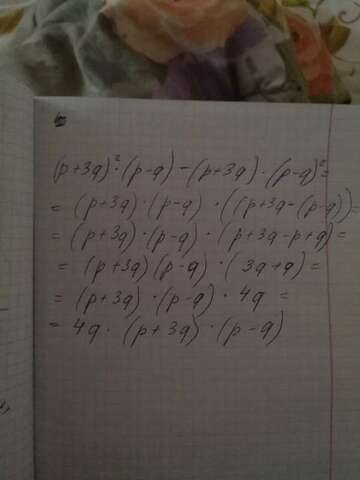 (p+3q)²·(p-q)-(p+3q)·(p-q)²=
= (p+3q)·(p-q)·((p+3q-(p-q))=
= (p+3q)·(p-q)·(p+3q-p+q)=
= (p+3q)(p-q)·(3q+q)=
= (p+3q)·(p-q)·4q =
= 4q·(p+3q)·(p-q)